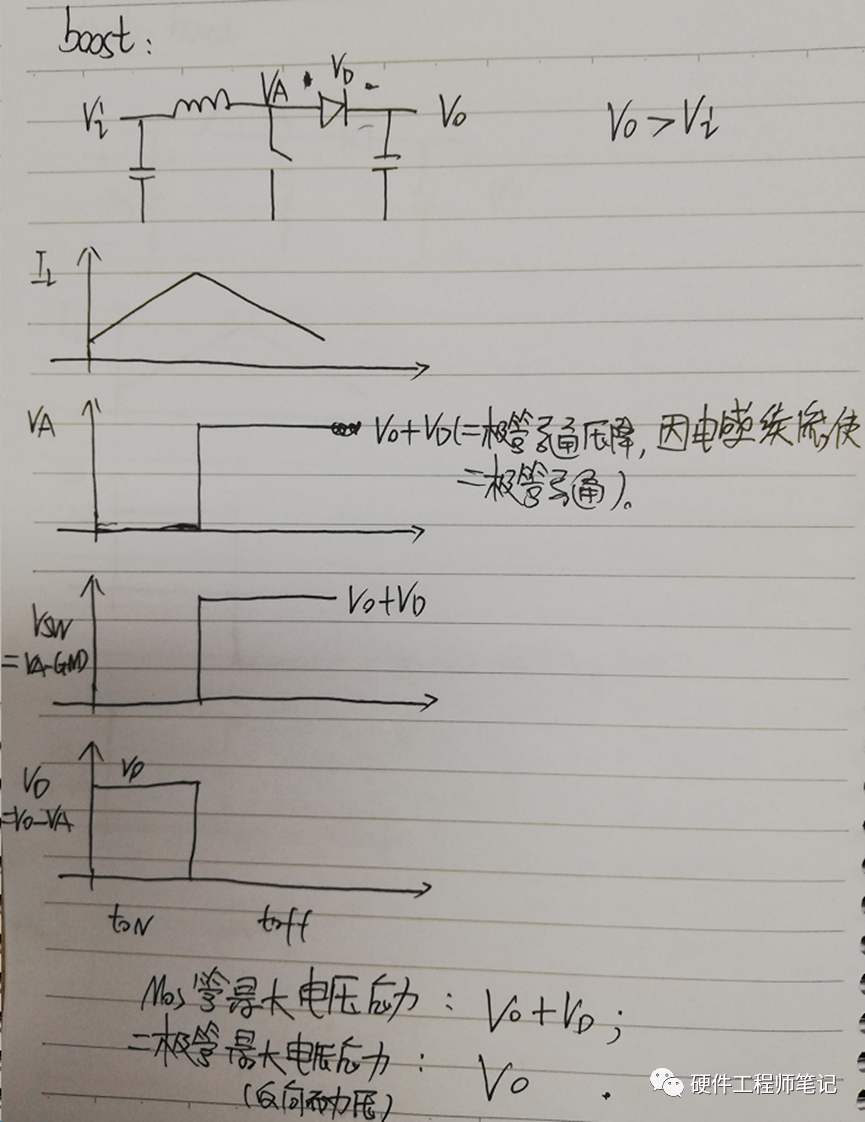 boost:
Vi
VA
VD
Vo
Vo>Vi
IL
VA
Vo+VD(二极管导通压降,因电感续流使
二极管导通)。
VSW
=VA-GND
Vo+VD
VD
=Vo-VA
Vo
ton
toff
Mos管最大电压应力: Vo+VD;
二极管最大电压应力: Vo.
(反向耐力压)
硬件工程师笔记